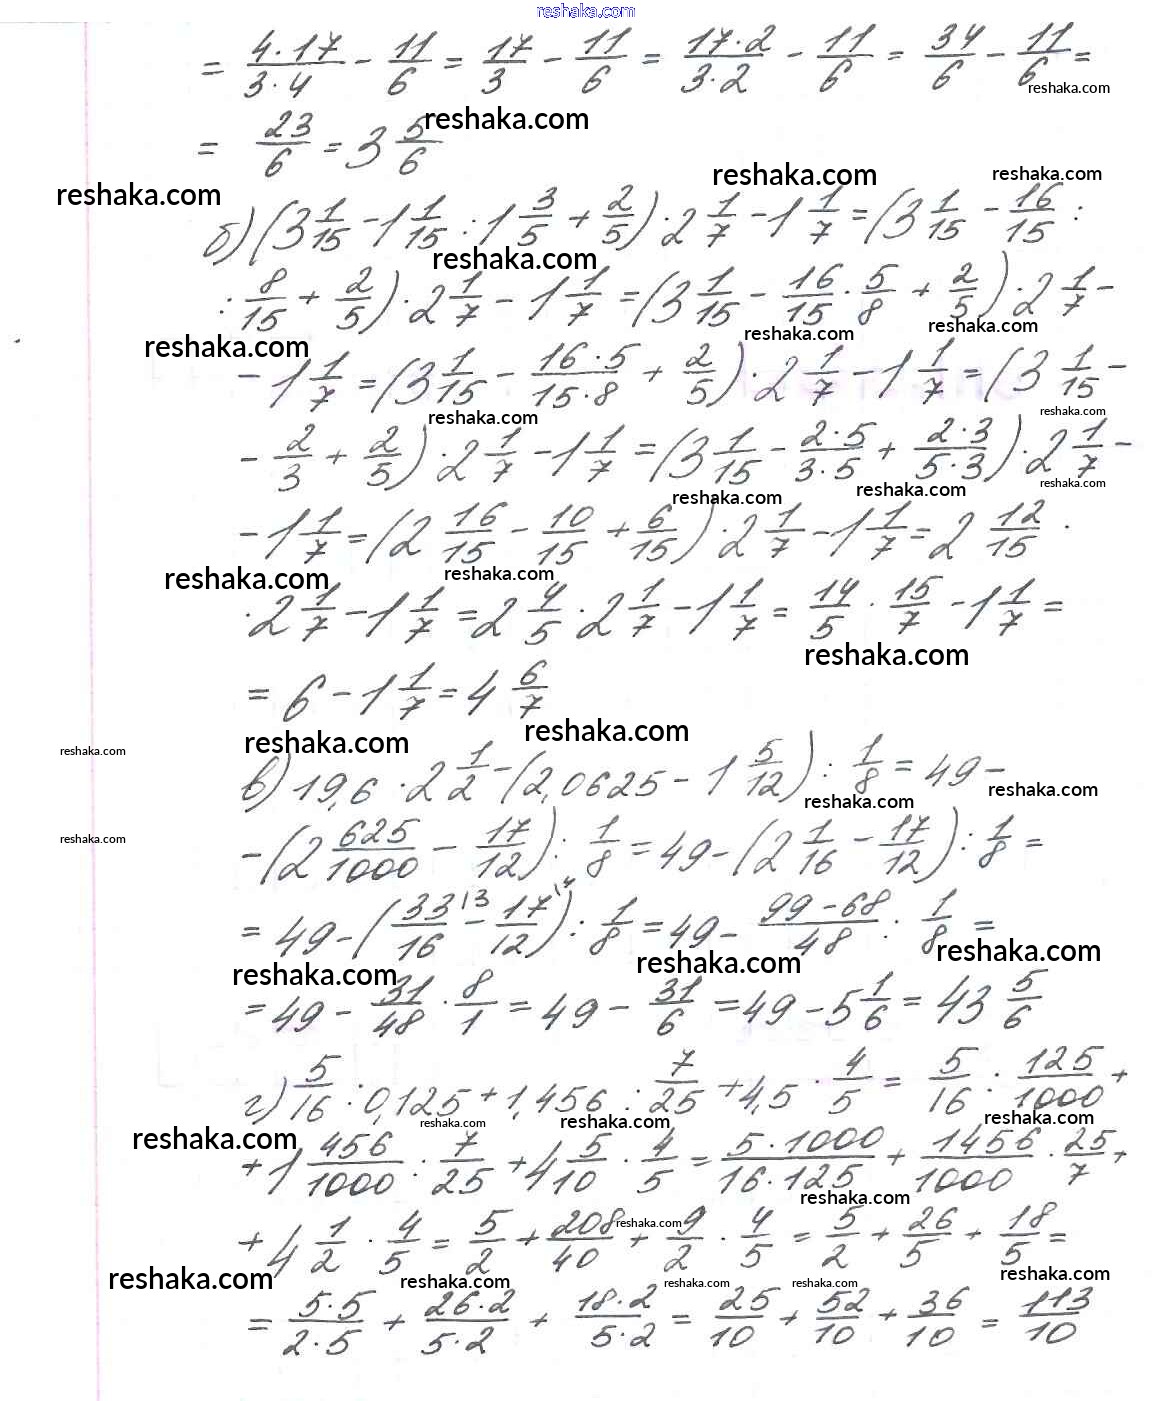 reshaka.com
= 4·17/3·4 - 11/6 = 17/3 - 11/6 = 17·2/3·2 - 11/6 = 34/6 - 11/6 =
reshaka.com
= 23/6 = 3 5/6
reshaka.com
reshaka.com
reshaka.com
reshaka.com
б) (3 1/15 - 1 1/15 : 1 3/5 + 2/5) · 2 1/7 - 1 1/7 = (3 1/15 - 16/15 :
reshaka.com
: 8/15 + 2/5) · 2 1/7 - 1 1/7 = (3 1/15 - 16/15 · 5/8 + 2/5) · 2 1/7 -
reshaka.com
reshaka.com
reshaka.com
- 1 1/7 = (3 1/15 - 16·5/15·8 + 2/5) · 2 1/7 - 1 1/7 = (3 1/15 -
reshaka.com
reshaka.com
- 2/3 + 2/5) · 2 1/7 - 1 1/7 = (3 1/15 - 2·5/3·5 + 2·3/5·3) · 2 1/7 -
reshaka.com
reshaka.com
reshaka.com
- 1 1/7 = (2 16/15 - 10/15 + 6/15) · 2 1/7 - 1 1/7 = 2 12/15 ·
reshaka.com
reshaka.com
· 2 1/7 - 1 1/7 = 2 4/5 · 2 1/7 - 1 1/7 = 14/5 · 15/7 - 1 1/7 =
reshaka.com
= 6 - 1 1/7 = 4 6/7
reshaka.com
reshaka.com
reshaka.com
в) 19,6 · 2 1/2 - (2,0625 - 1 5/12) : 1/8 = 49 -
reshaka.com
reshaka.com
reshaka.com
- (2 625/1000 - 17/12) : 1/8 = 49 - (2 1/16 - 17/12) : 1/8 =
= 49 - (33/16 \3 - 17/12 \4) : 1/8 = 49 - 99-68/48 : 1/8 =
reshaka.com
reshaka.com
reshaka.com
= 49 - 31/48 · 8/1 = 49 - 31/6 = 49 - 5 1/6 = 43 5/6
г) 5/16 : 0,125 + 1,456 : 7/25 + 4,5 · 4/5 = 5/16 : 125/1000 +
reshaka.com
reshaka.com
reshaka.com
reshaka.com
+ 1 456/1000 : 7/25 + 4 5/10 · 4/5 = 5·1000/16·125 + 1456/1000 · 25/7 +
reshaka.com
reshaka.com
+ 4 1/2 · 4/5 = 5/2 + 208/40 + 9/2 · 4/5 = 5/2 + 26/5 + 18/5 =
reshaka.com
reshaka.com
reshaka.com
reshaka.com
reshaka.com
= 5·5/2·5 + 26·2/5·2 + 18·2/5·2 = 25/10 + 52/10 + 36/10 = 113/10